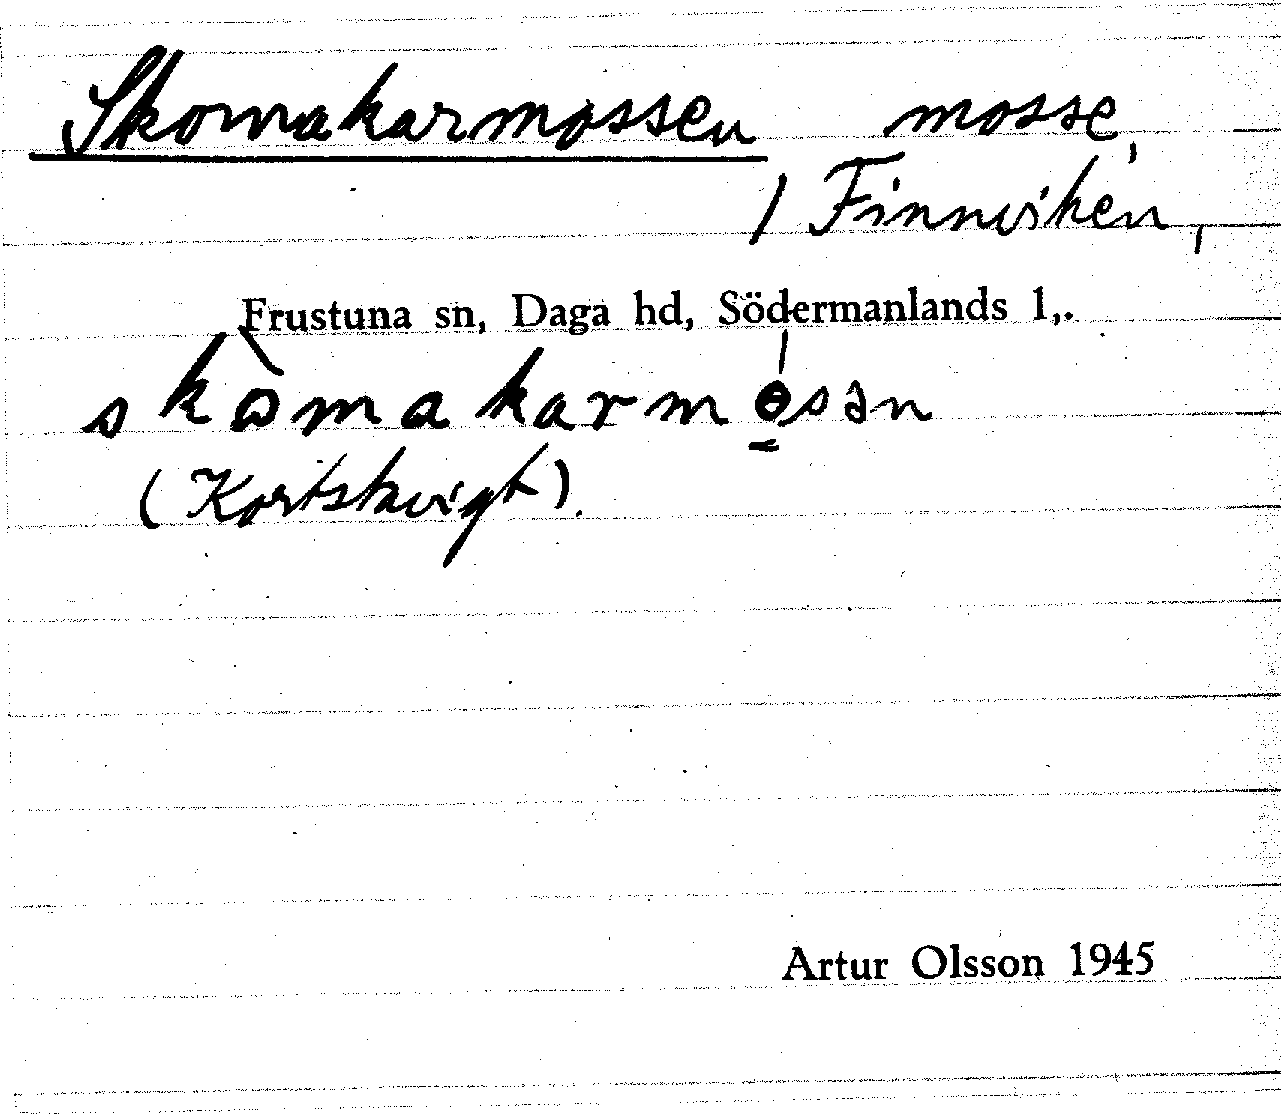 Skomakarmossen mosse,
/ Finnviken,
Frustuna sn, Daga hd, Södermanlands l,.
skòmakarmósən
(Kortstavigt).
Artur Olsson 1945